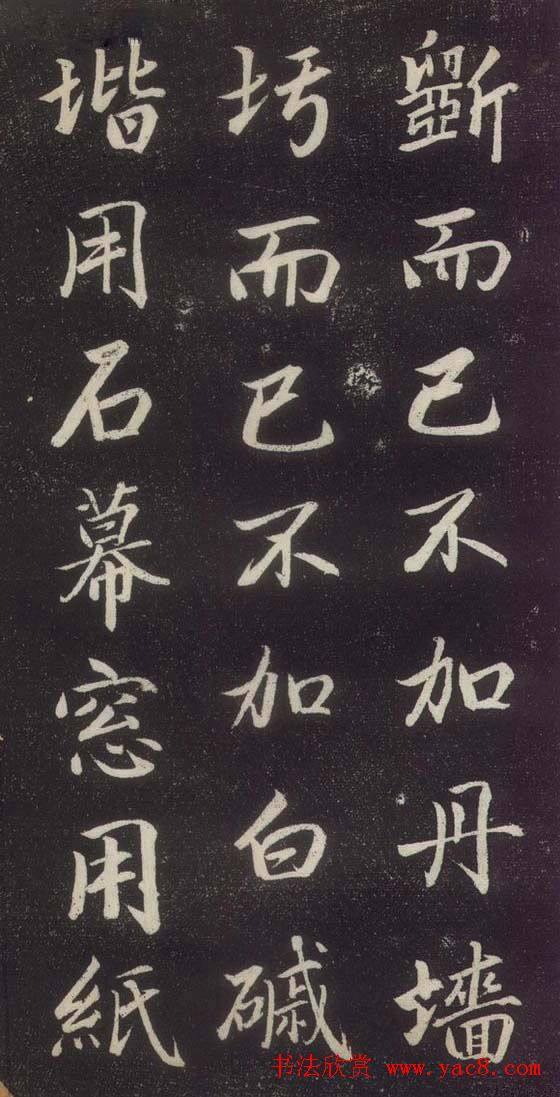 斵而已不加丹墻
圬而已不加白磩
堦用石幕窓用紙
书法欣赏 www.yac8.com